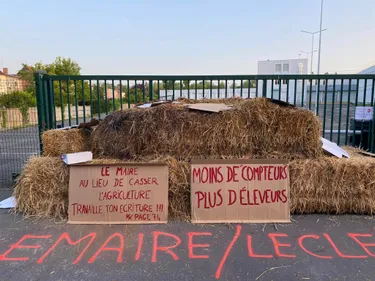 LE MAIRE
AU LIEU DE CASSER
L'AGRICULTURE
TRAVAILLE TON ECRITURE !!!
PAGE 74
MOINS DE COMPTEURS
PLUS D'ÉLEVEURS
EMAIRE/LECLE